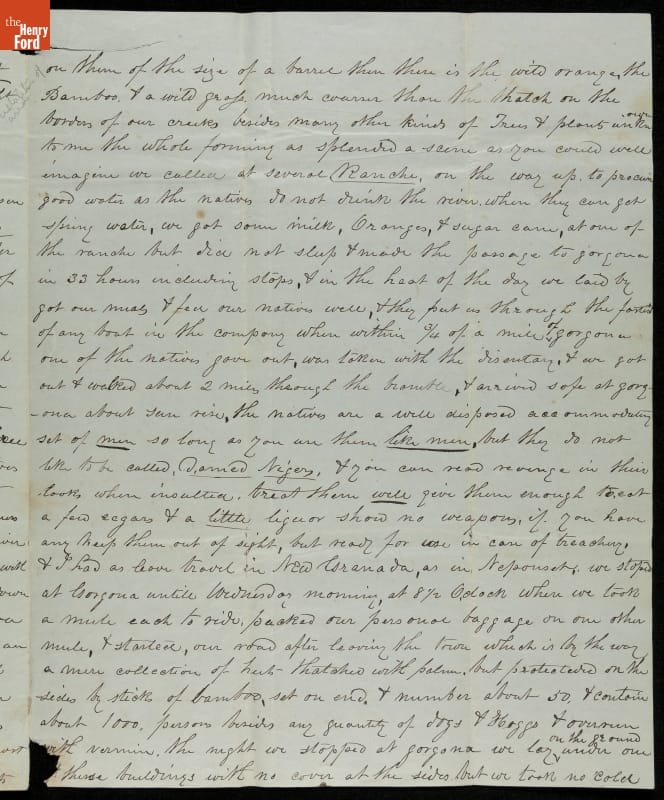 the
Henry
Ford
on them of the size of a barrel then there is the wild orange, the
Bamboo, & a wild grass, much coarser than the thatch on the
borders of our creeks besides many other kinds of Trees & plants unknown
to me the whole forming as splendid a scene as you could well
imagine we called at several Ranche, on the way up, to procure
good water as the natives do not drink the river, when they can get
spring water, we got some milk, Oranges, & sugar cane, at one of
the ranche but did not sleep & made the passage to gorgona
in 33 hours including stops, & in the heat of the day we laid by
got our meals & fed our natives well, & they put us through the fastest
of any boat in the company when within 3/4 of a mile of gorgona
one of the natives gave out, was taken with the disentary, & we got
out & walked about 2 miles through the bramble, & arrived safe at gorg-
-ona about sun rise, the natives are a well disposed accommodating
set of men so long as you use them like men, but they do not
like to be called, Damed Nigers, & you can read revenge in their
looks when insulted, treat them well give them enough to eat
a few segars & a little liquor show no weapons, if you have
any keep them out of sight, but ready for use in case of treachery,
& I had as leave travel in New Granada, as in Neponset, we stoped
at Gorgona untill Wednesday morning, at 8 1/2 Oclock where we took
a mule each to ride, packed our personal baggage on one other
mule, & started, our road after leaving the town which is by the way
a mere collection of huts thatched with palm, but protecteded on the
sides by sticks of bamboo, set on end, & number about 50, & contain
about 1000, persons besides any quantity of dogs & Hoggs & overrun
with vermin, the night we stopped at gorgona we lay on the ground under one
of these buildings with no cover at the sides but we took no cold